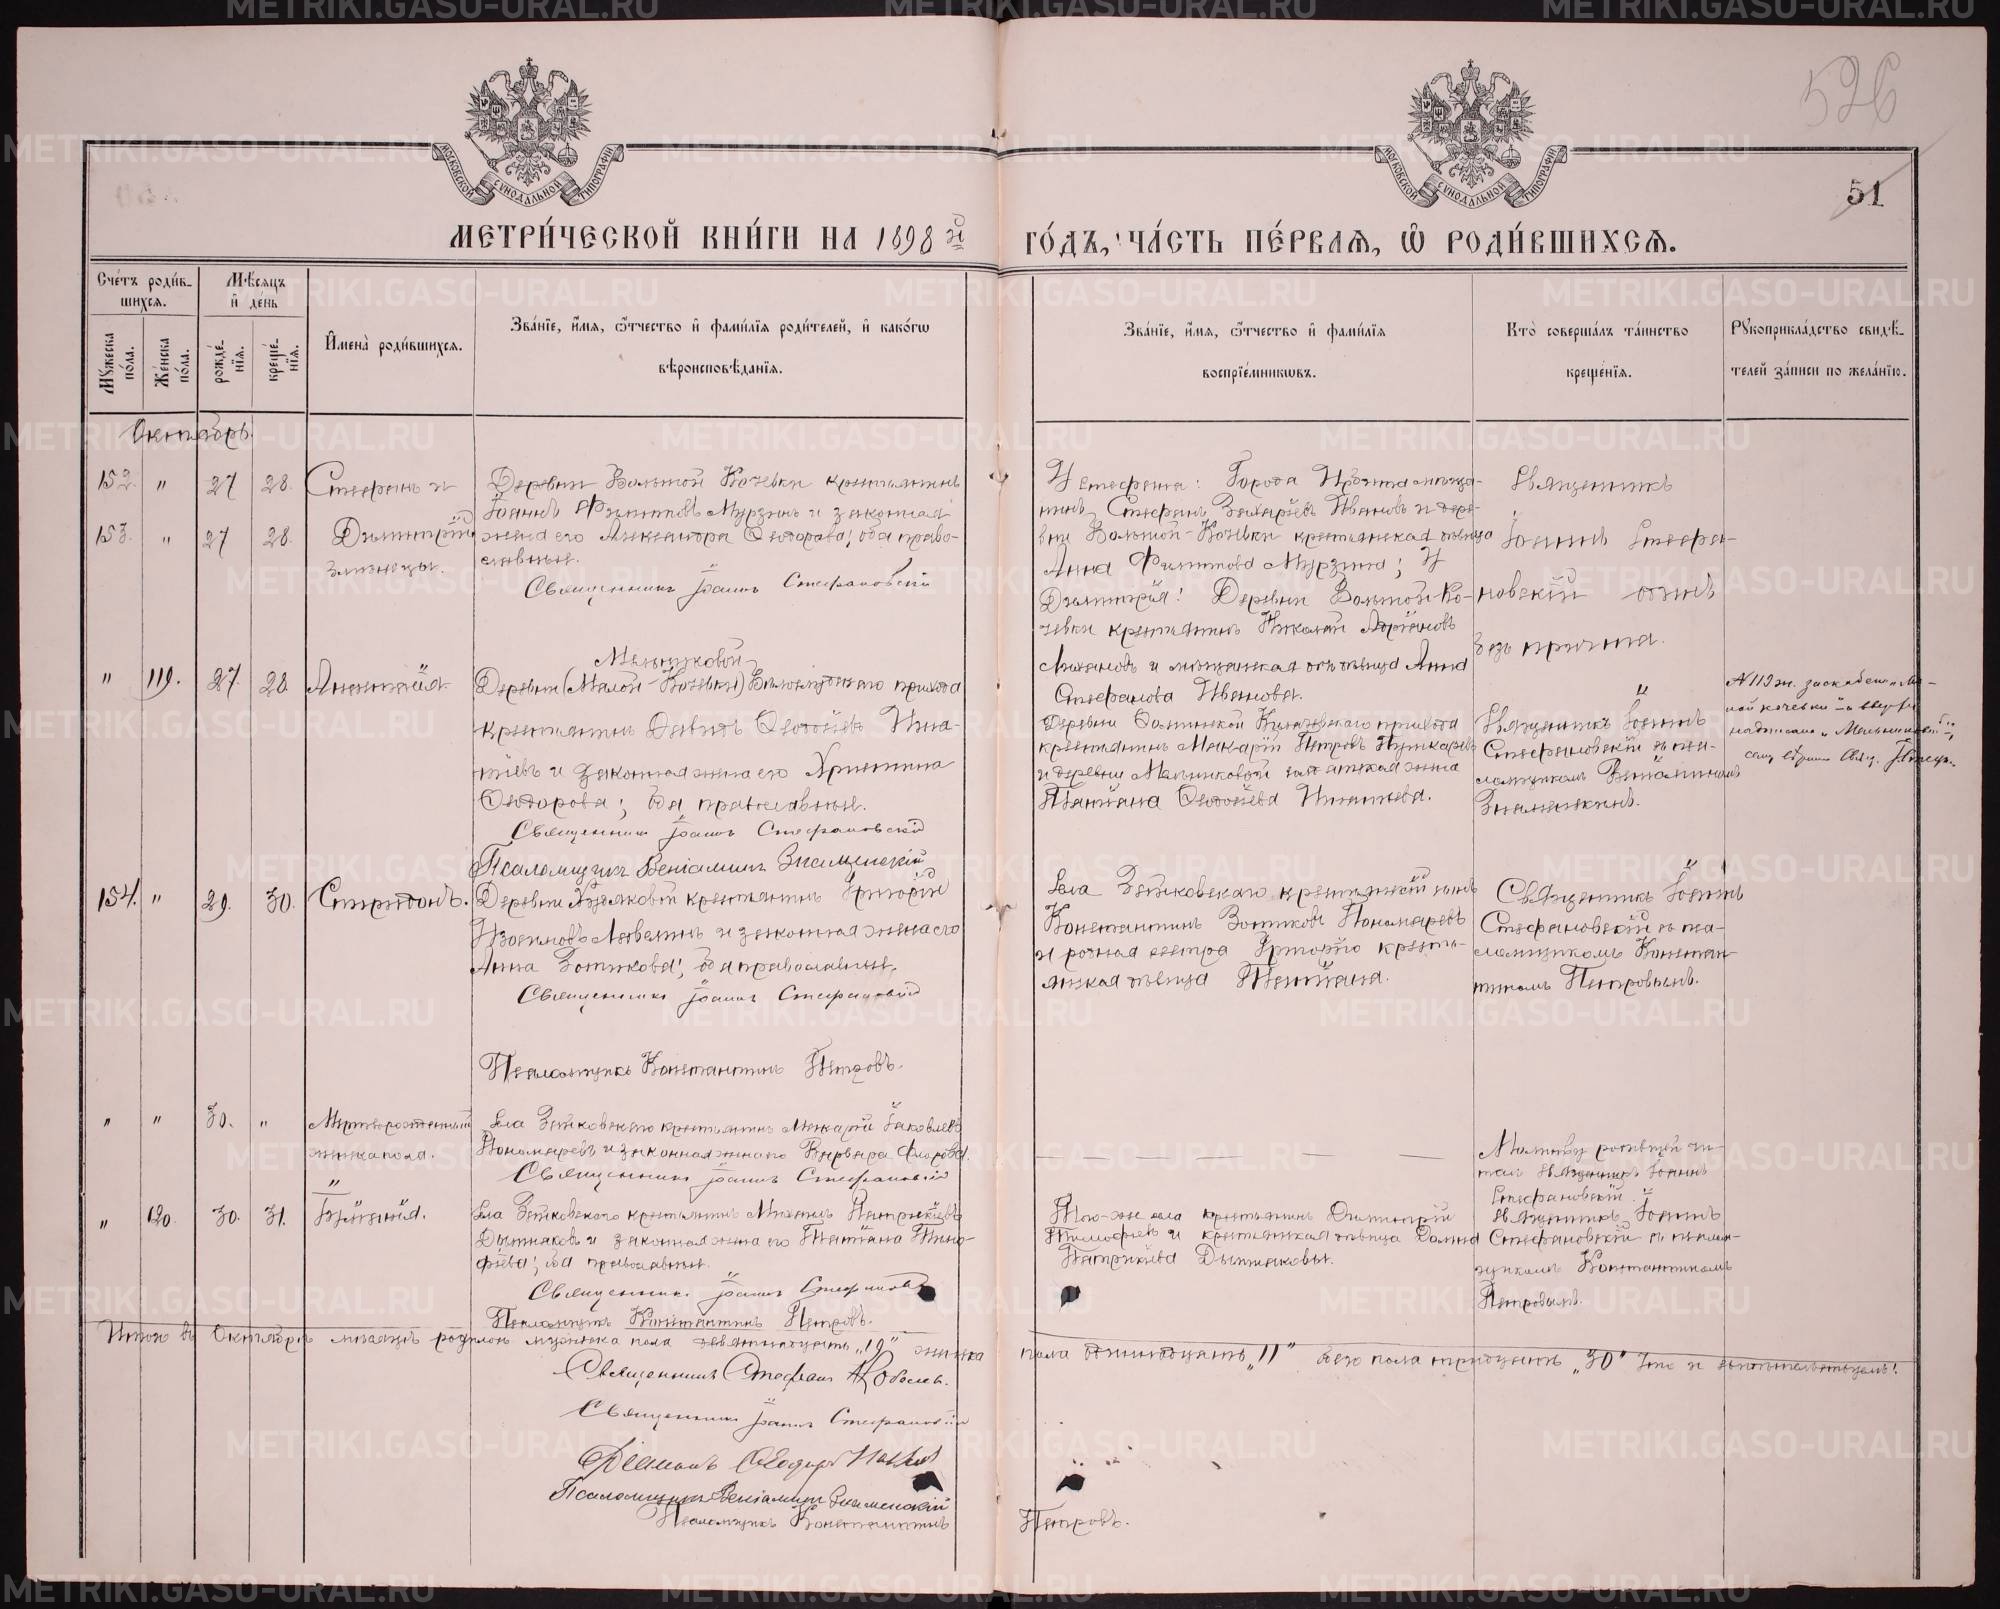 526
51
МОСКОВСКОЙ СѴНОДАЛЬНОЙ ТИПОГРАФІИ
МОСКОВСКОЙ СѴНОДАЛЬНОЙ ТИПОГРАФІИ
МЕТРИ́ЧЕСКОЙ КНИ́ГИ НА 1898 й
ГО́ДЪ, ЧА́СТЬ ПЕ́РВАЯ, Ѡ РОДИ́ВШИХСЯ.
Счетъ родив-
шихся.
Мѣсяцъ
и день
Мужеска пола.
Женска пола.
рожде-
нія.
креще-
нія.
Имена родившихся.
Званіе, имя, отчество и фамилія родителей, и какогѡ
вѣроисповѣданія.
Званіе, имя, отчество и фамилія
воспріемниковъ.
Кто совершалъ таинство
крещенія.
Рукоприкладство свидѣ-
телей записи по желанію.
Октябрь.
152. " 27 28. Стефанъ и
153. " 27 28. Димитрій
близнецы.
Деревни Большой Кочевки крестьянинъ
Іоаннъ Филиповъ Мурзинъ и законная
жена его Александра Ѳедорова; оба право-
славные.
Священникъ Іоаннъ Стефановскій
У Стефана: Города Ирбита мѣща-
нинъ Стефанъ Захаріевъ Ивановъ и дере-
вни Большой-Кочевки крестьянская дѣвица
Анна Филипова Мурзина; У
Димитрія: Деревни Большой Ко-
чевки крестьянинъ Николай
и мѣщанская дѣвица Анна
Стефанова Иванова.
Священникъ
Іоаннъ Стефа-
новскій одинъ
безъ причта.
" 119. 27. 28 Анастасія
Мельниковой
Деревни (Малой-Кочевки) прихода
крестьянинъ Давидъ Игна-
тіевъ и законная жена его Христина
Ѳедорова; оба православные.
Священникъ Іоаннъ Стефановскій
Псаломщикъ Веніаминъ Знаменскій
Деревни прихода
крестьянинъ Макарій Петровъ Пушкаревъ
и деревни Мельниковой жена
Татіана Игнатіева.
Священникъ Іоаннъ
Стефановскій съ пса-
ломщикомъ Веніаминомъ
Знаменскимъ.
№ 119 ж. заскоблено „Ма-
лой кочевки" а вверху
надписано „Мельниковой";
154. " 29. 30. Спиридонъ.
Деревни крестьянинъ Григорій
и законная жена его
Анна Зотикова; оба православные.
Священникъ Іоаннъ Стефановскій
Псаломщикъ Константинъ Петровъ.
Села Зайковскаго крестьянскій сынъ
Константинъ Зотиковъ Пономаревъ
и родная сестра Григорію кресть-
янская дѣвица Татіана.
Священникъ Іоаннъ
Стефановскій съ пса-
ломщикомъ Констан-
тиномъ Петровымъ.
" " 30. " Мертворожденный
женска пола.
Села Зайковскаго крестьянинъ Макарій Іаковлевъ
Пономаревъ и законная жена его Варвара Флорова.
Священникъ Іоаннъ Стефановскій
Молитву родившей чи-
талъ священникъ Іоаннъ
Стефановскій.
" 120. 30. 31. Евгенія.
Села Зайковскаго крестьянинъ Михаилъ Патрикіевъ
и законная жена его Татіана Тимо-
фіева; оба православные.
Священникъ Іоаннъ Стефановск
Псаломщикъ Константинъ Петровъ.
Того-же села крестьянинъ Димитрій
Тимофіевъ и крестьянская дѣвица Домна
Патрикіева
Священникъ Іоаннъ
Стефановскій съ псалом-
щикомъ Константиномъ
Петровымъ.
Итого въ Октябрѣ мѣсяцѣ родилось мужеска пола девятнадцать „19" женска
пола одиннадцать „11" обего пола тридцать „30" Что и свидѣтельствуемъ:
Священникъ Стефанъ
Священникъ Іоаннъ Стефановскій
Діаконъ Ѳеодоръ
Псаломщикъ Веніаминъ Знаменскій
Псаломщикъ Константинъ
Петровъ.
METRIKI.GASO-URAL.RU